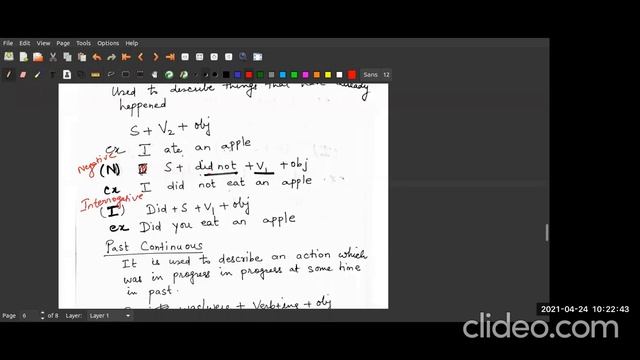 File Edit View Page Tools Options Help
Sans 12
Used to describe things that have already
happened
S + V2 + obj
ex I ate an apple
Negative
(N) S + did not + V1 + obj
ex I did not eat an apple
Interrogative
(I) Did + S + V1 + obj
ex Did you eat an apple
Past Continuous
It is used to describe an action which
was in progress in progress at some time
in past.
was/were + Verb+ing + obj
Page 6 of 8 Layer Layer 1
2021-04-24 10:22:43
clideo.com